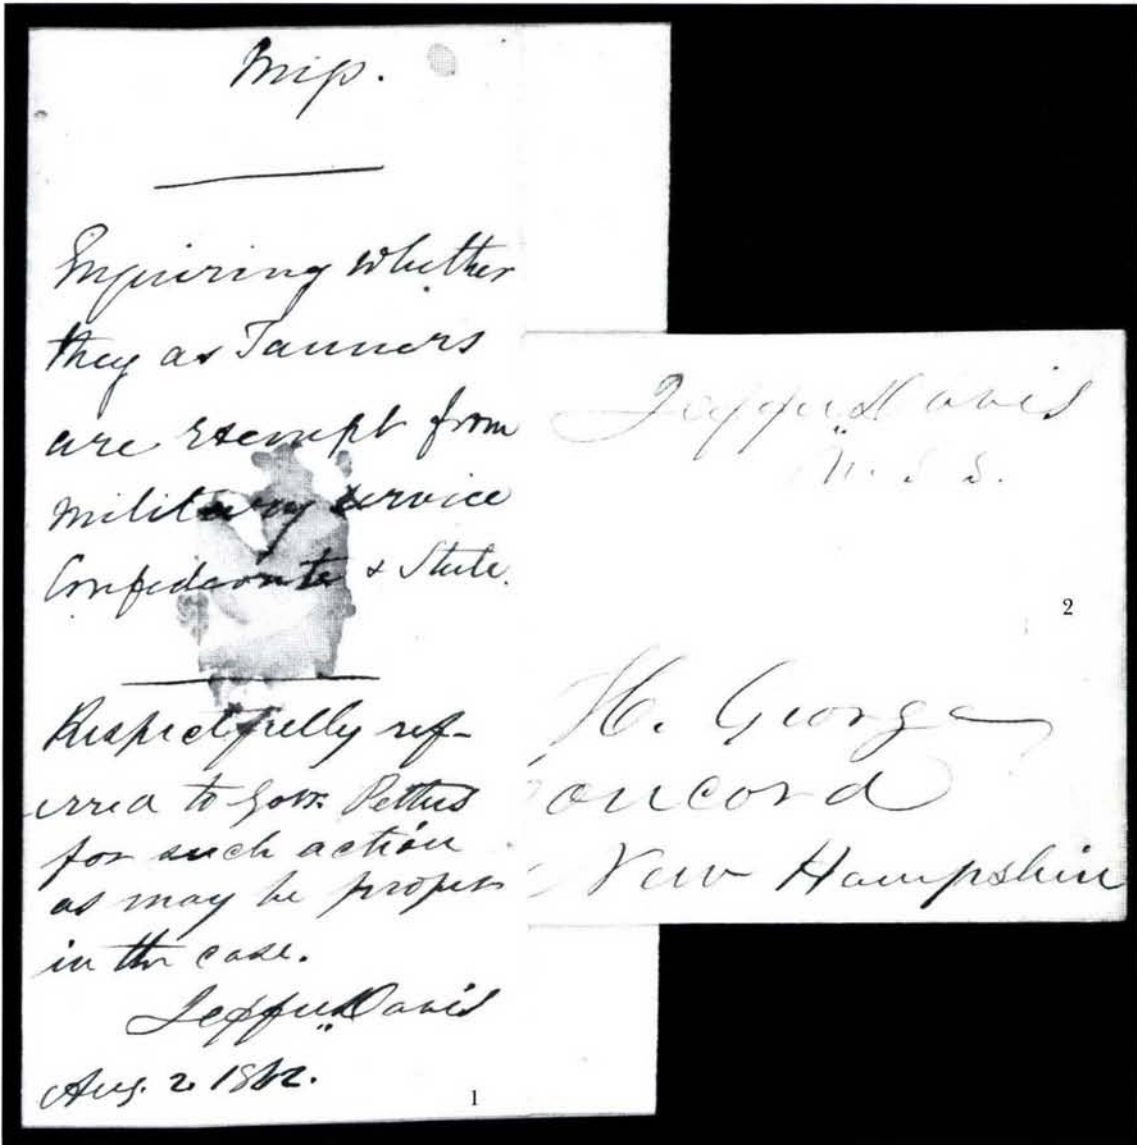 Miss.
Enquiring whether
they as Tanners
are exempt from
military service
Confederate & State.
Respectfully ref-
erred to Govr. Pettus
for such action
as may be proper
in the case.
Jeffn. Davis
Aug. 2. 1862.
1
Jeffn. Davis
U. S. S.
2
H. George
oncord
New Hampshire